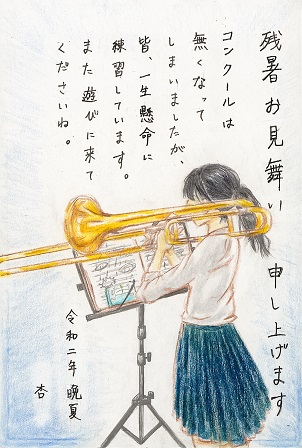 残暑お見舞い 申し上げます
コンクールは
無くなって
しまいましたが、
皆、一生懸命に
練習しています。
また遊びに来て
くださいね。
令和二年 晩夏
杏